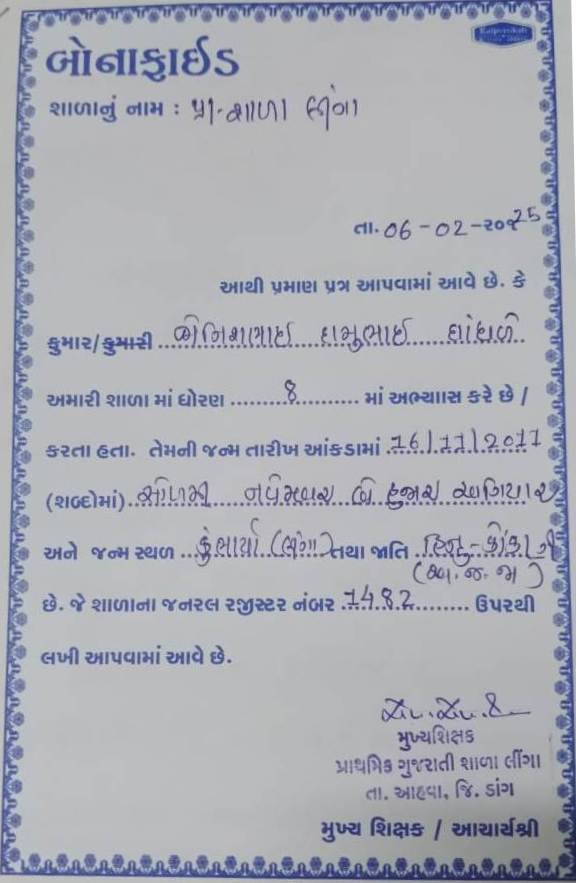 બોનાફાઈડ
શાળાનું નામ : પ્રા. શાળા લીંગા
તા. 06-02-૨૦25
આથી પ્રમાણ પત્ર આપવામાં આવે છે. કે
કુમાર/કુમારી
અમારી શાળા માં ધોરણ 8 માં અભ્યાસ કરે છે /
કરતા હતા. તેમની જન્મ તારીખ આંકડામાં 16/11/2011
(શબ્દોમાં) સોળમી નવેમ્બર બે હજાર અગિયાર
અને જન્મ સ્થળ (લીંગા) તથા જાતિ હિન્દુ-કોંકણી
(અ.જ.જા)
છે. જે શાળાના જનરલ રજીસ્ટર નંબર 1482 ઉપરથી
લખી આપવામાં આવે છે.
મુખ્યશિક્ષક
પ્રાથમિક ગુજરાતી શાળા લીંગા
તા. આહવા, જિ. ડાંગ
મુખ્ય શિક્ષક / આચાર્યશ્રી